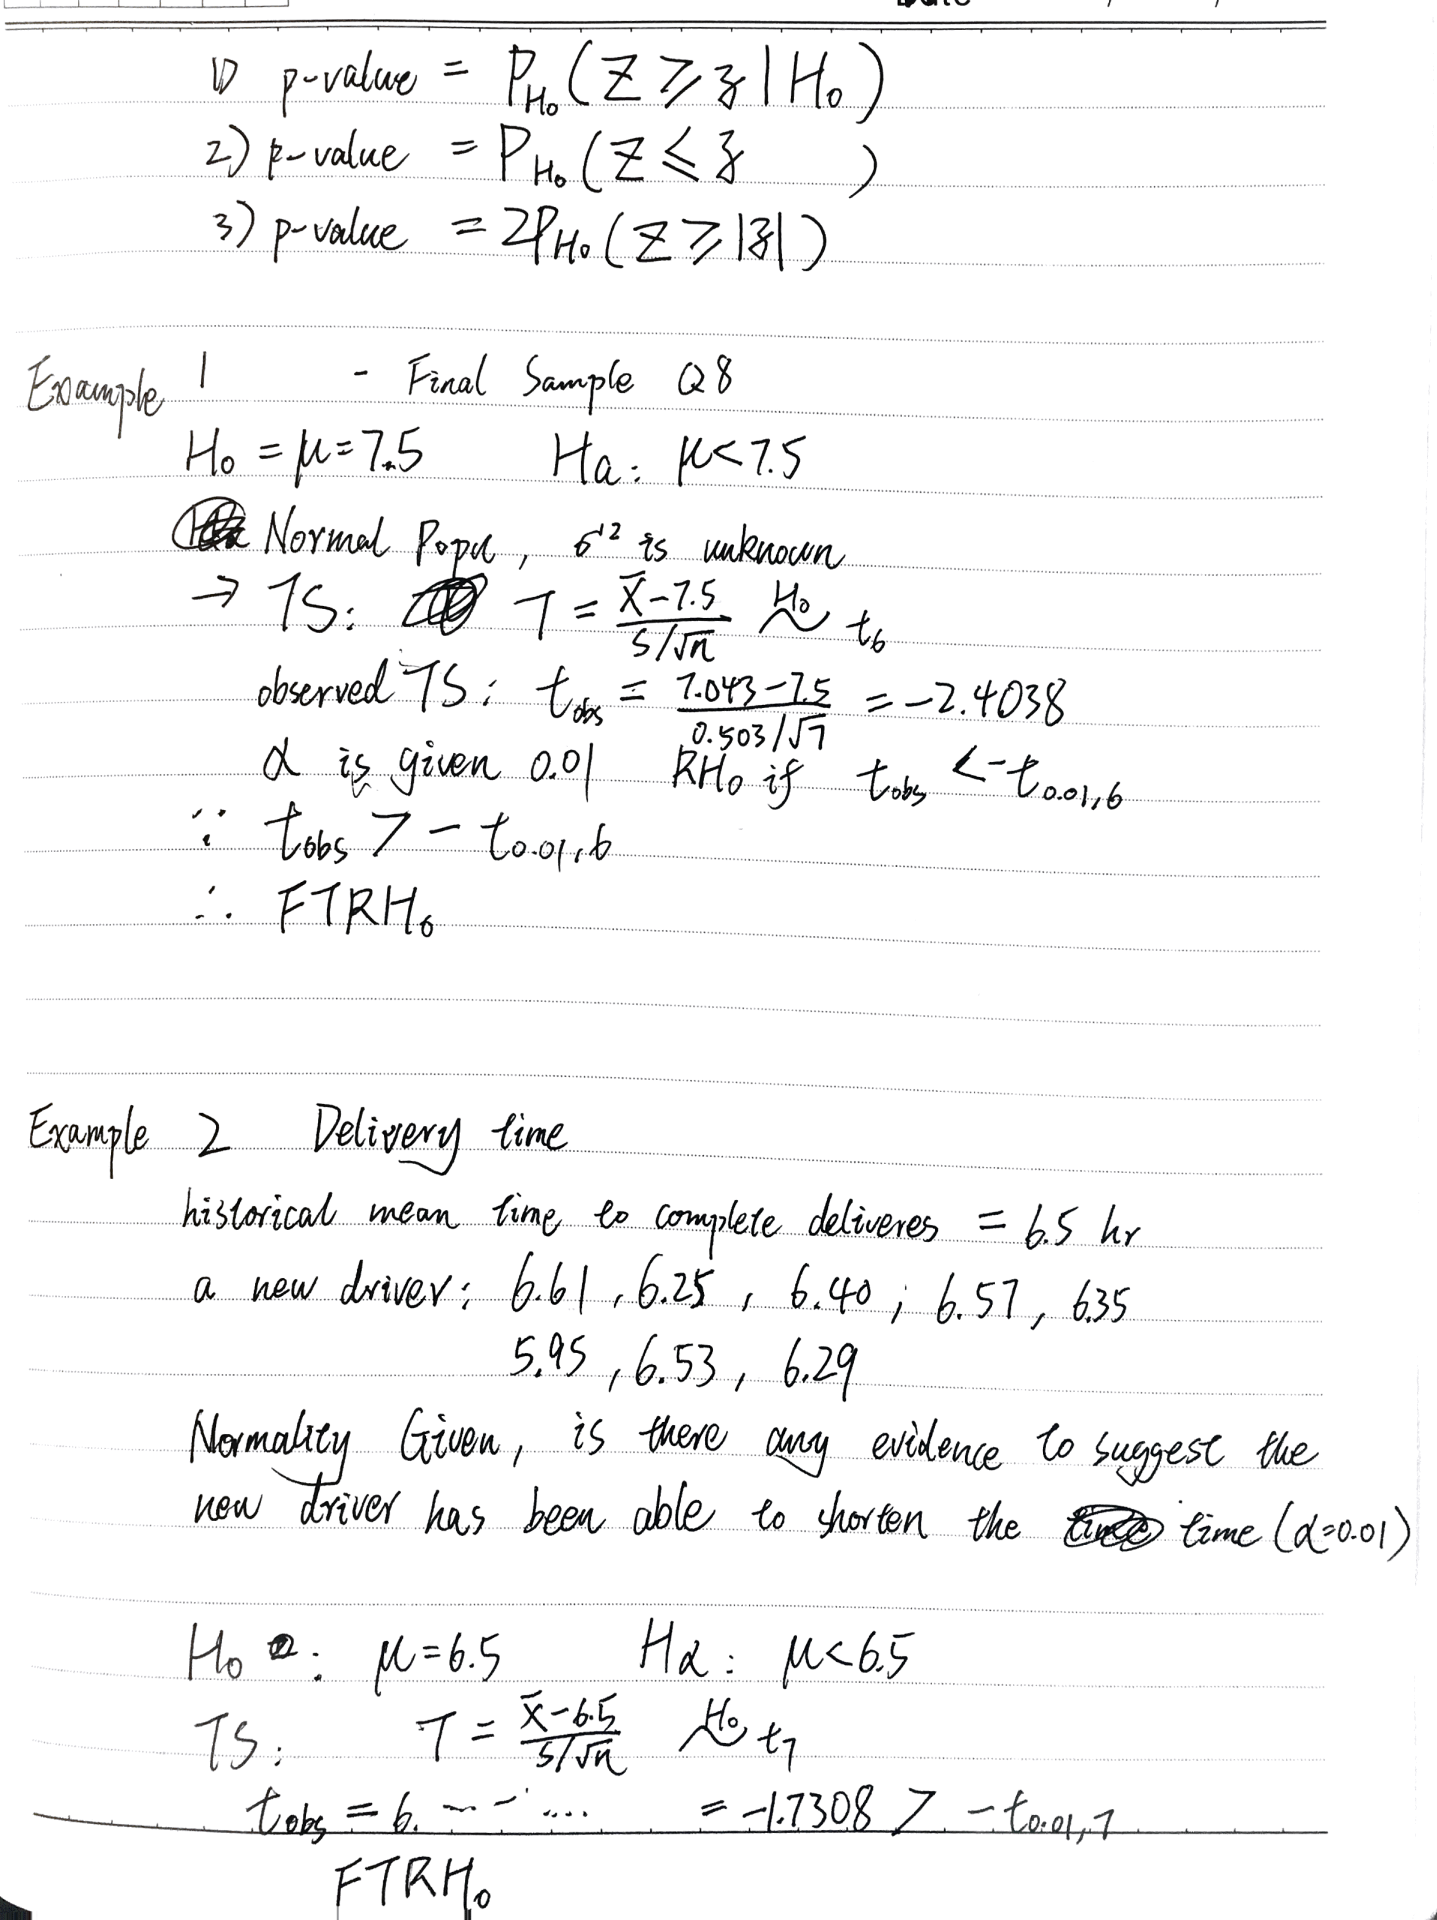 1) p-value = P_H₀(Z ≥ z | H₀)
2) p-value = P_H₀(Z ≤ z )
3) p-value = 2P_H₀(Z ≥ |z|)
Example 1 - Final Sample Q8
H₀ = μ = 7.5 Ha: μ < 7.5
Normal Popu, σ² is unknown
→ TS: T = (x̄ - 7.5)/(s/√n) ~^H₀ t₆
observed TS: t_obs = (7.043 - 7.5)/(0.503/√7) = -2.4038
α is given 0.01 RH₀ if t_obs < -t_0.01,6
∵ t_obs > -t_0.01,6
∴ FTRH₀
Example 2 Delivery time
historical mean time to complete deliveres = 6.5 hr
a new driver: 6.61, 6.25, 6.40; 6.57, 6.35
5.95, 6.53, 6.29
Normality Given, is there any evidence to suggest the
new driver has been able to shorten the time (α=0.01)
H₀: μ = 6.5 Hα: μ < 6.5
TS: T = (x̄ - 6.5)/(s/√n) ~^H₀ t₇
t_obs = 6. --- .... = -1.7308 > -t_0.01,7
FTRH₀